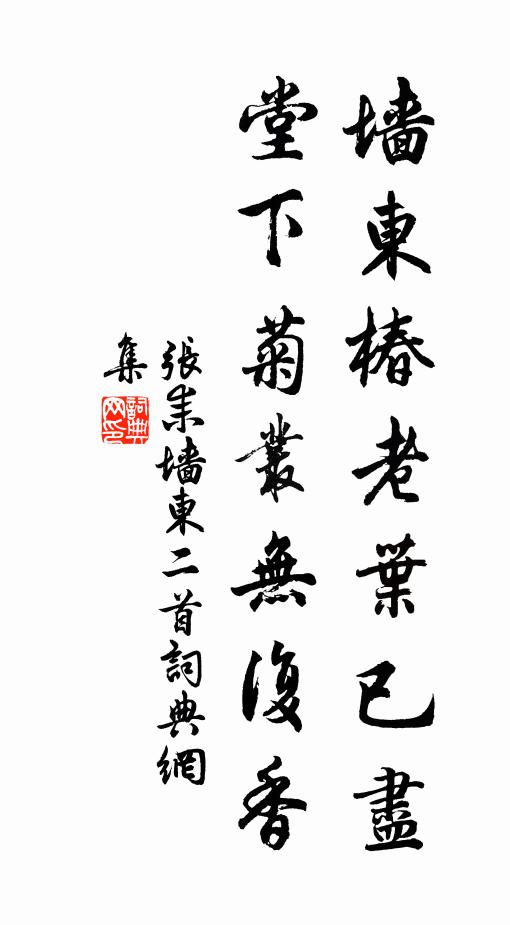 墙東椿老葉已盡
堂下菊叢無復香
張耒墙東二首詞典網
集
詞典
网印